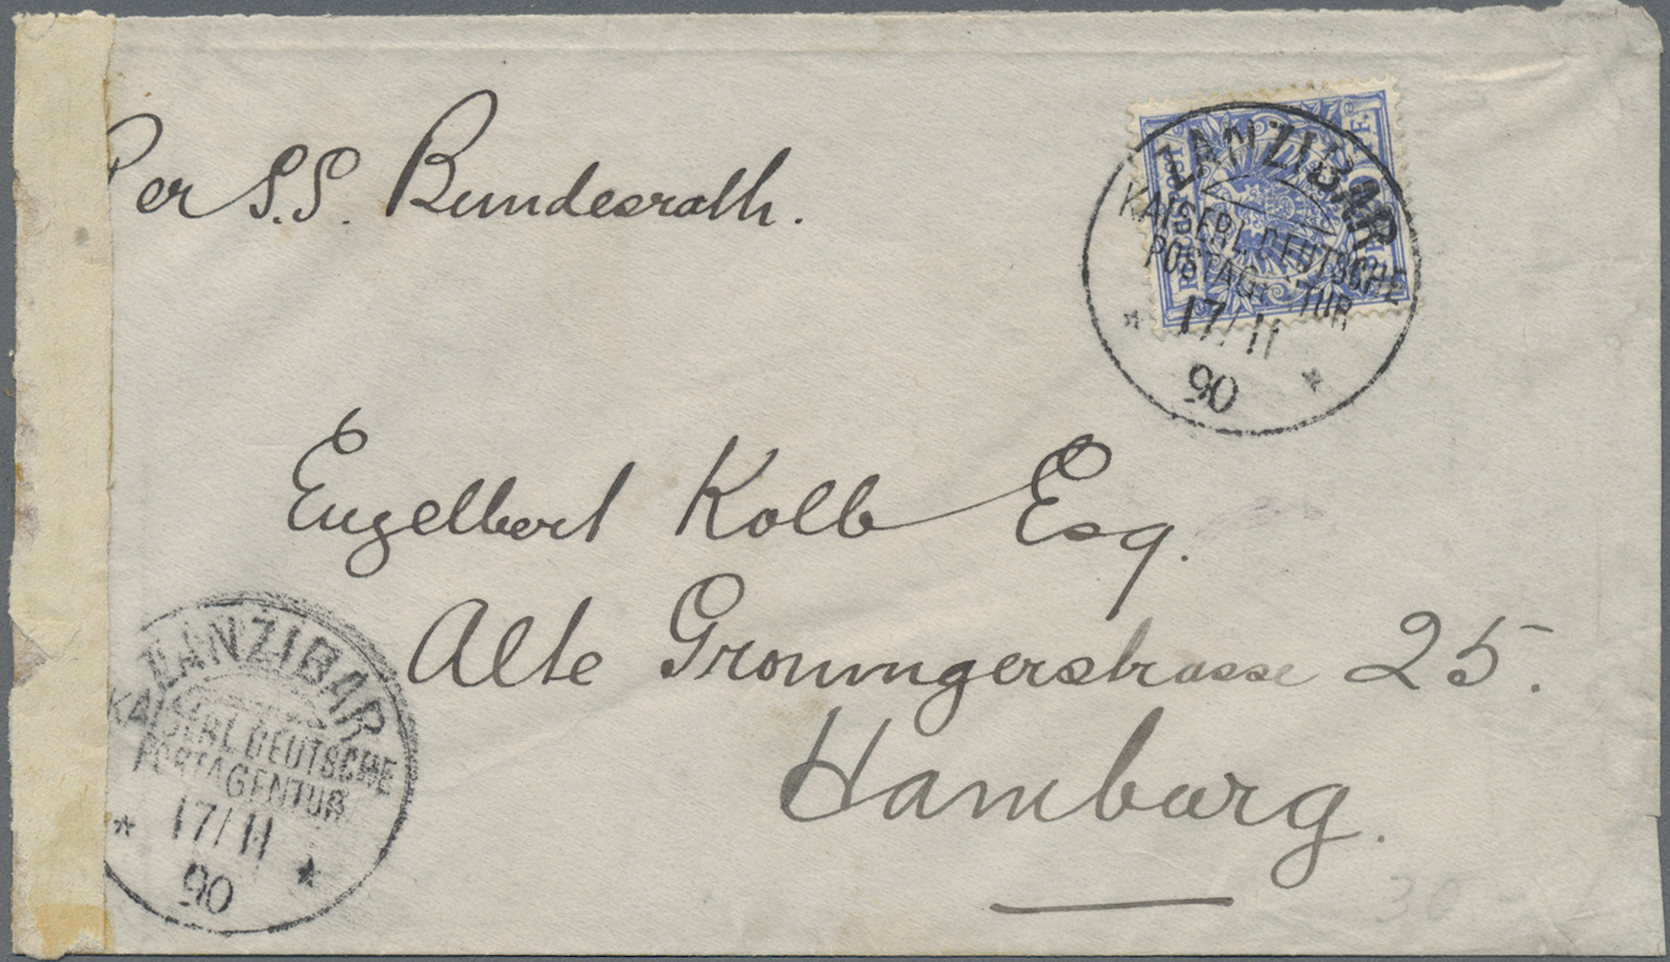 Per S.S. Bundesrath.
ZANZIBAR
KAISERL. DEUTSCHE
POSTAGENTUR
* 17/11 *
90
Engelbert Kolb Esq.
Alte Groningerstrasse 25.
Hamburg.
ZANZIBAR
KAISERL. DEUTSCHE
POSTAGENTUR
* 17/11 *
90